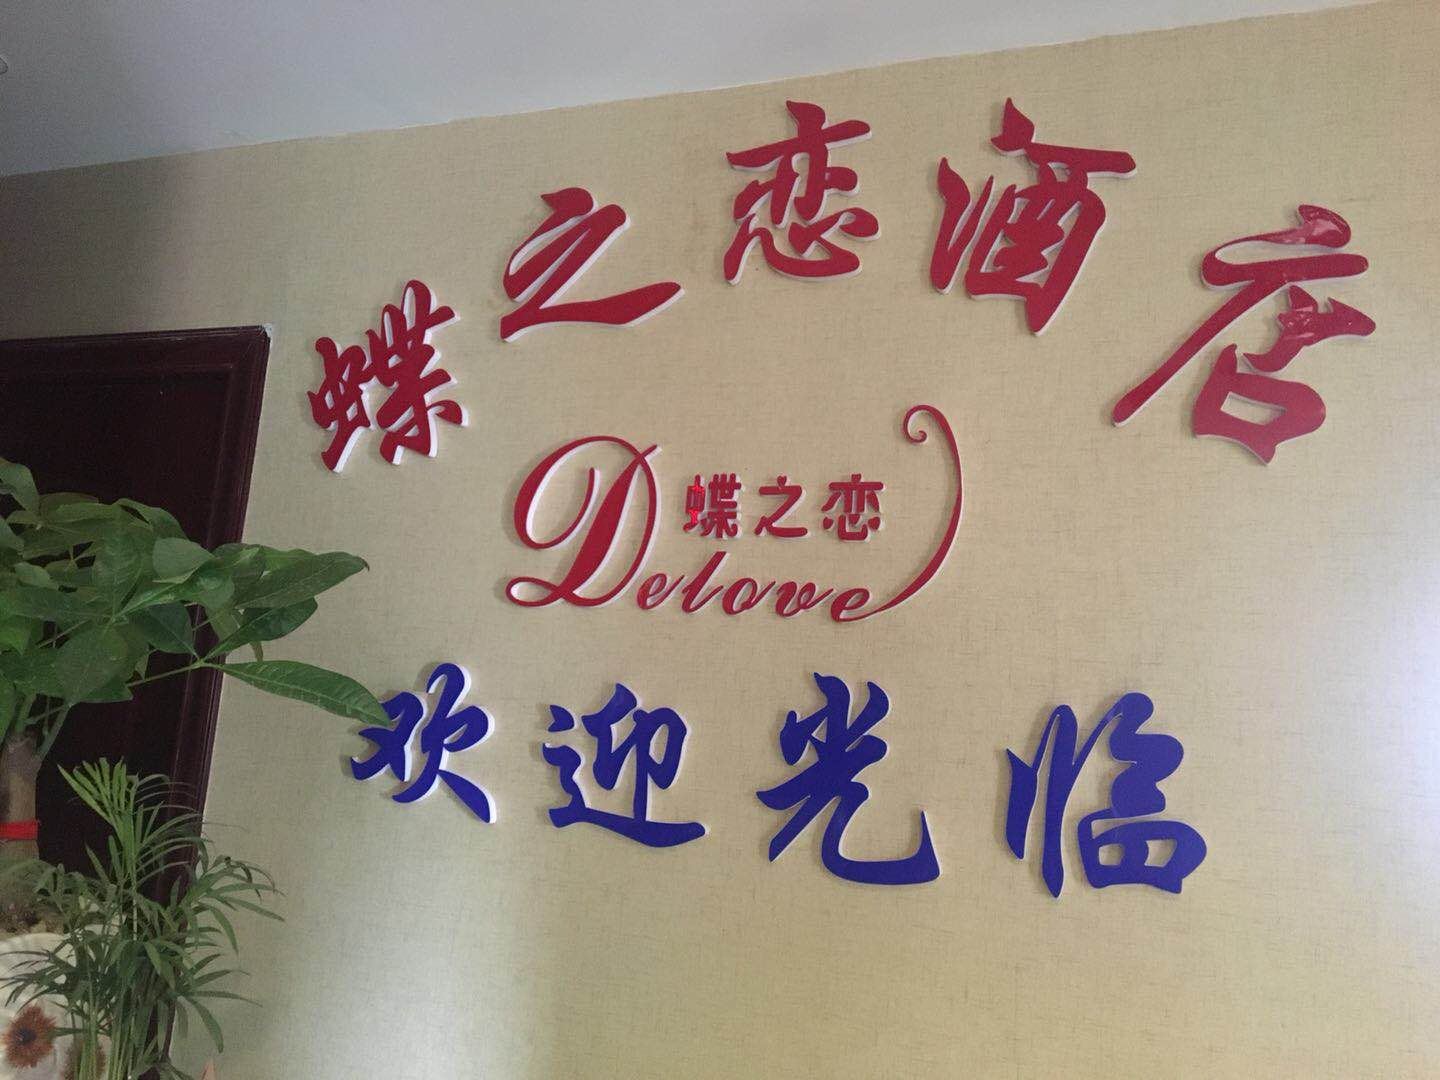 蝶之恋酒店
蝶之恋
Delove
欢迎光临